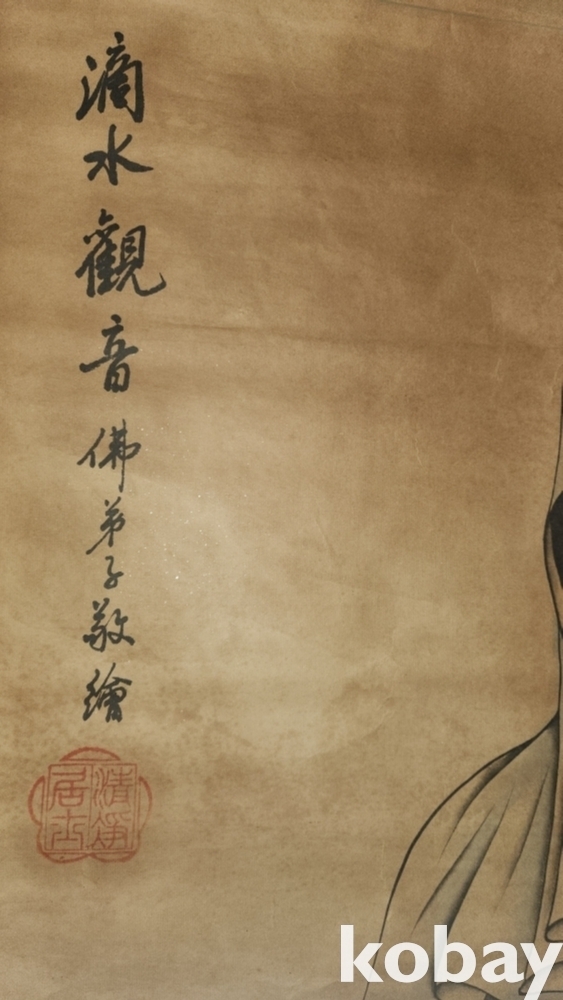 滴水觀音 佛弟子敬繪
清淨居士
kobay